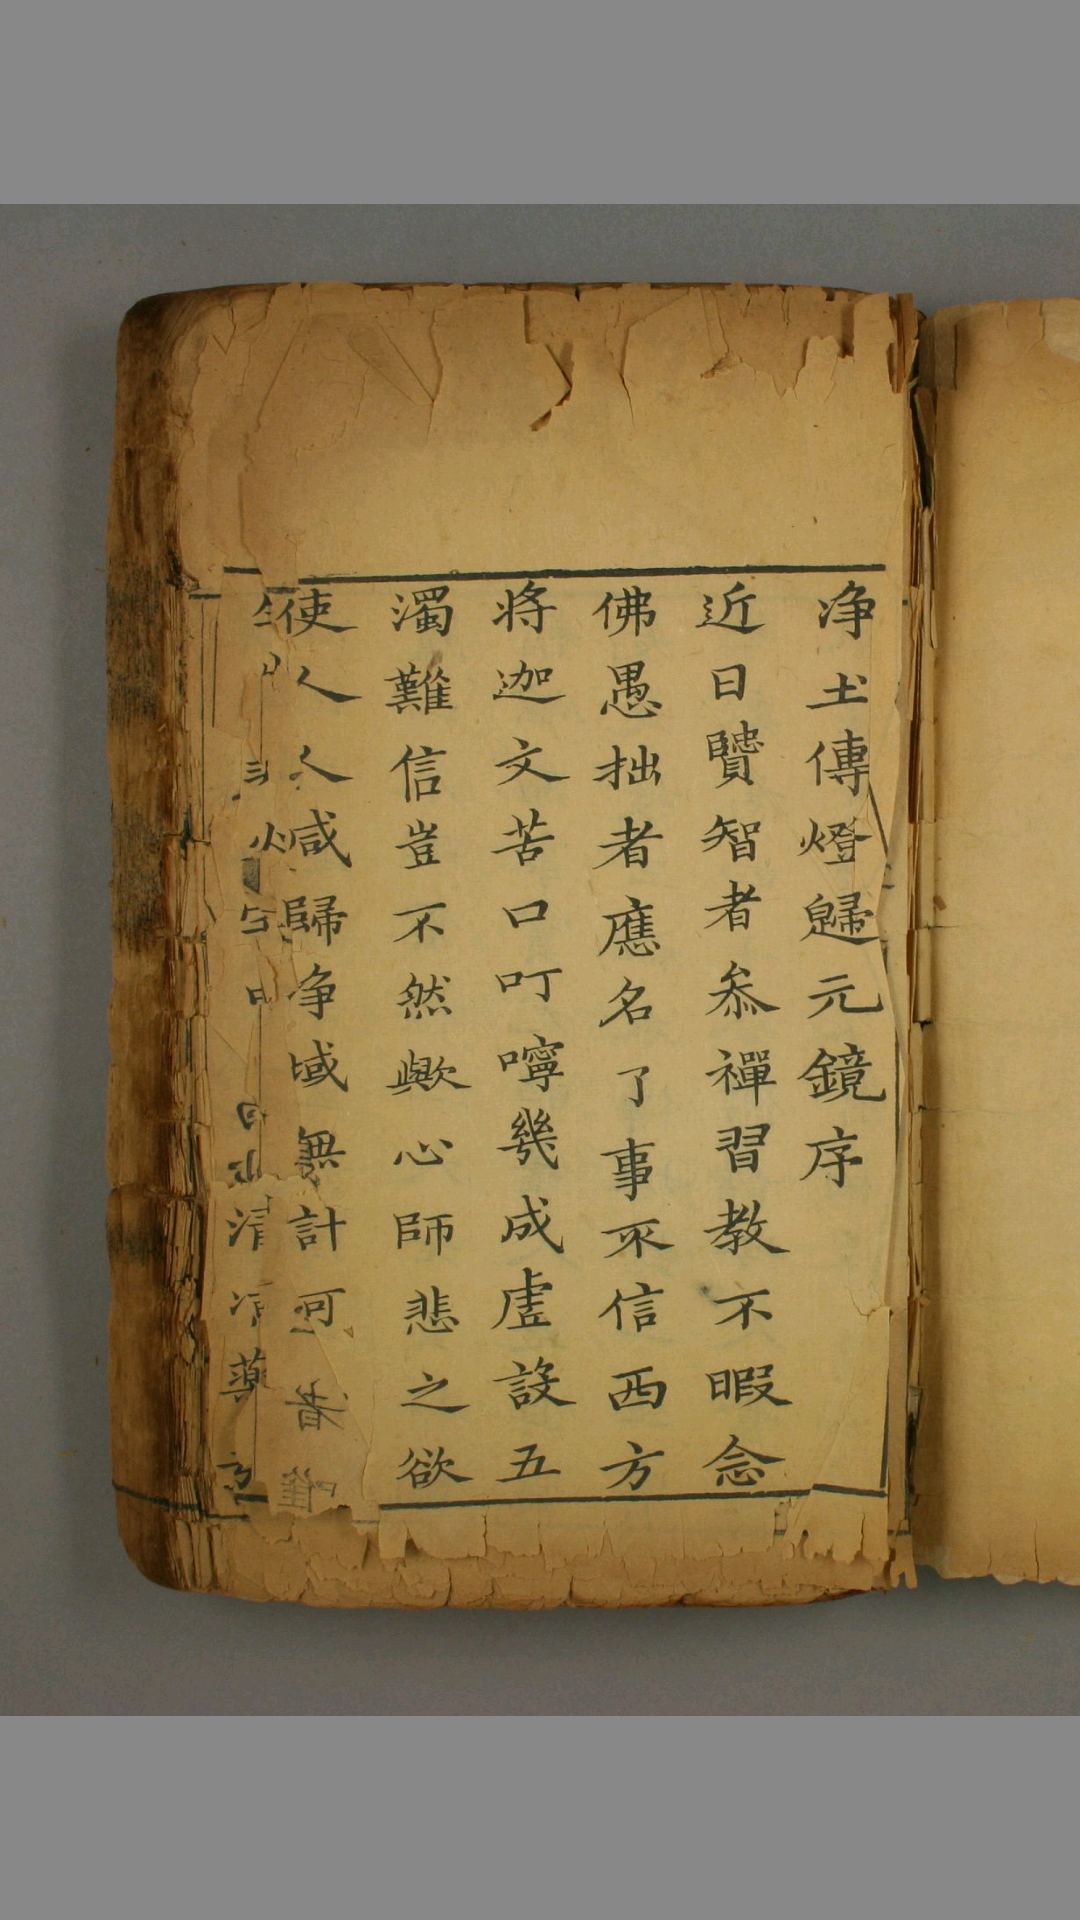 净土傳燈歸元鏡序
近日聵智者叅禪習教不暇念
佛愚拙者應名了事不信西方
將迦文苦口叮嚀幾成虛設五
濁難信豈不然歟心師悲之欲
使人人咸歸争域無計可者唯
清薬